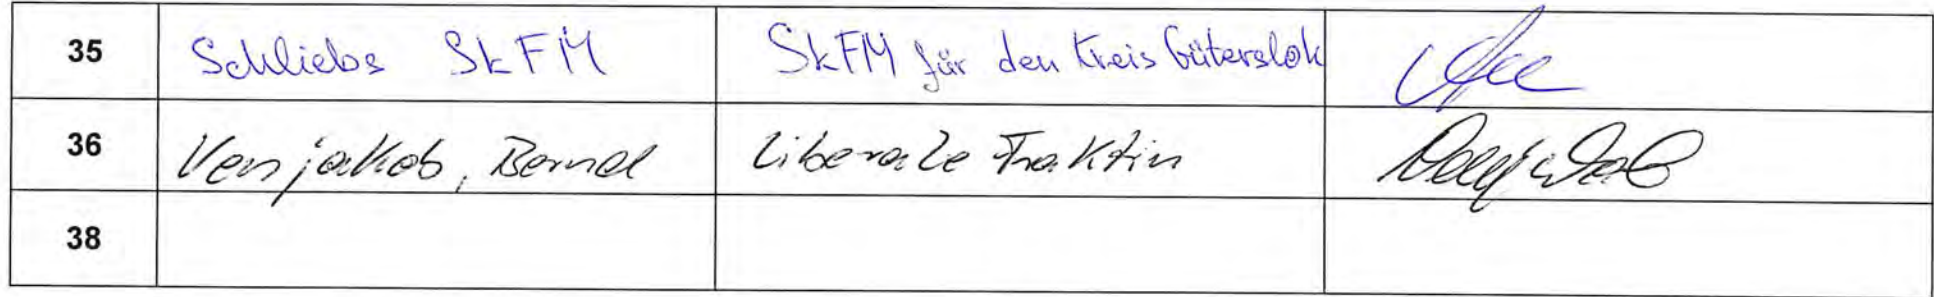 35 Schliebs SkFM SkFM für den Kreis Gütersloh
36 Venjakob, Bernd Liberale Fraktin
38